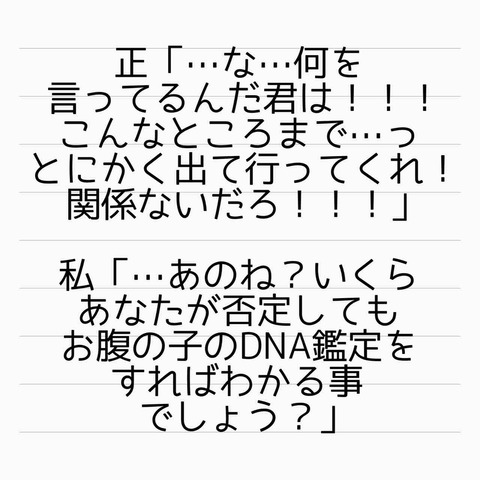 正「…な…何を
言ってるんだ君は！！！
こんなところまで…っ
とにかく出て行ってくれ！
関係ないだろ！！！」
私「…あのね？いくら
あなたが否定しても
お腹の子のDNA鑑定を
すればわかる事
でしょう？」